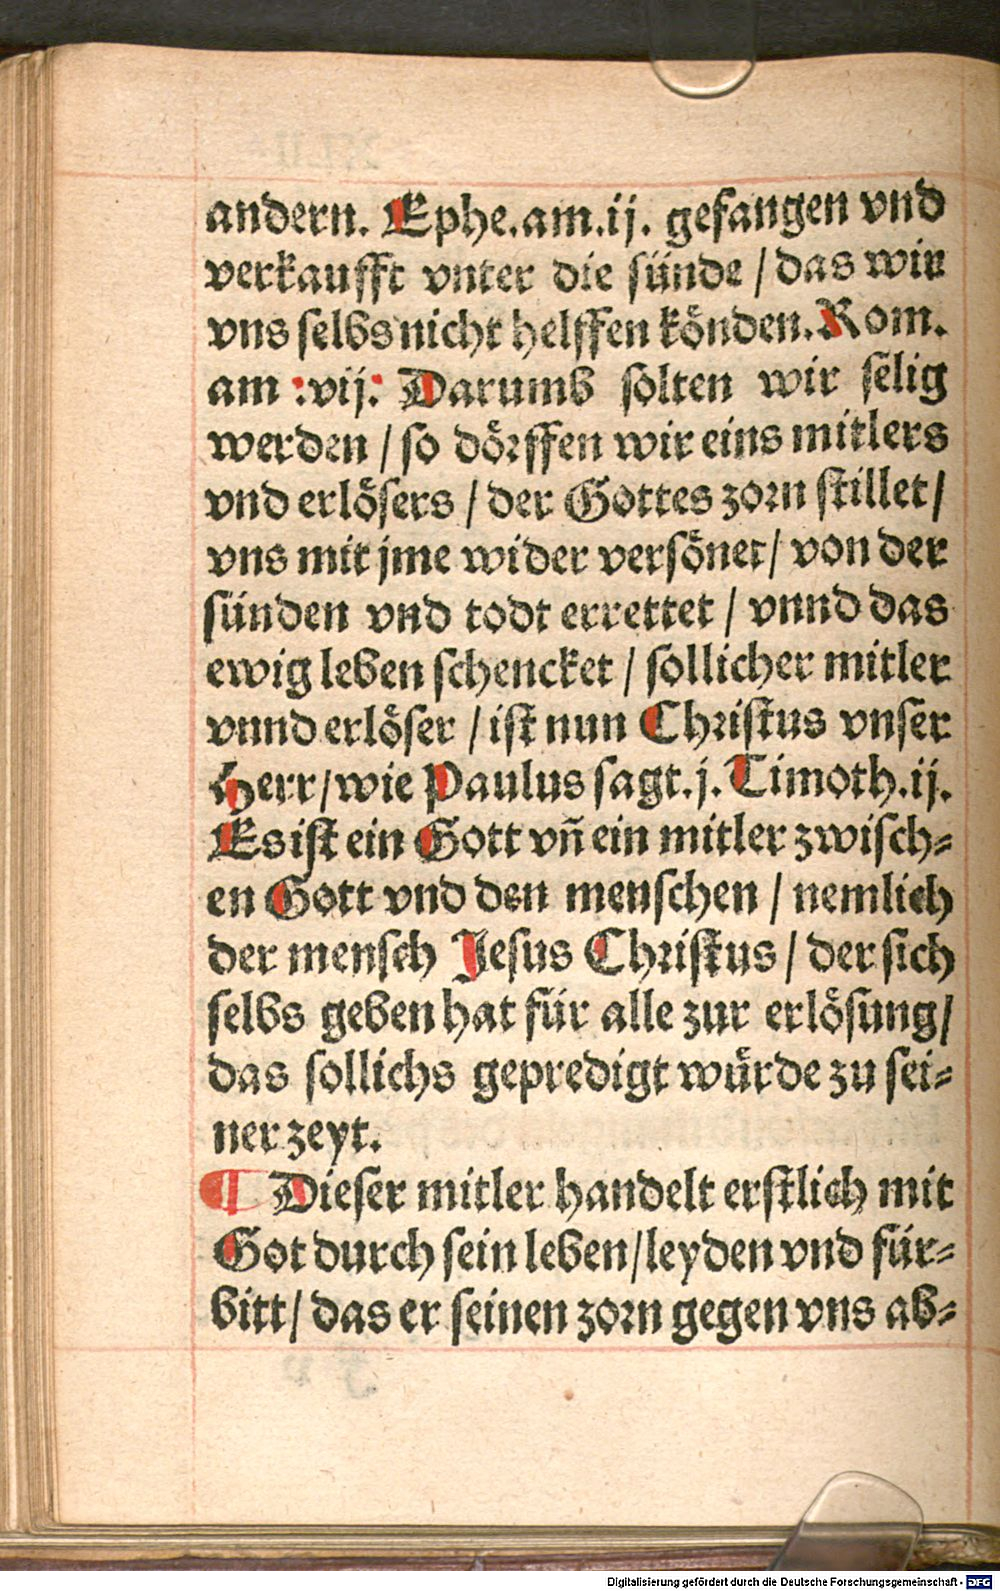 andern. Ephe.am.ij. gefangen vnd
verkaufft vnter die sünde / das wir
vns selbs nicht helffen könden. Rom.
am .vij. Darumb solten wir selig
werden / so dörffen wir eins mitlers
vnd erlösers / der Gottes zorn stillet /
vns mit jme wider versönet / von der
sünden vnd todt errettet / vnnd das
ewig leben schencket / sollicher mitler
vnnd erlöser / ist nun Christus vnser
Herr / wie Paulus sagt. j. Timoth. ij.
Es ist ein Gott vñ ein mitler zwisch=
en Gott vnd den menschen / nemlich
der mensch Jesus Christus / der sich
selbs geben hat für alle zur erlösung /
das sollichs gepredigt würde zu sei=
ner zeyt.
¶ Dieser mitler handelt erstlich mit
Got durch sein leben / leyden vnd für=
bitt / das er seinen zorn gegen vns ab=
Digitalisierung gefördert durch die Deutsche Forschungsgemeinschaft - DFG